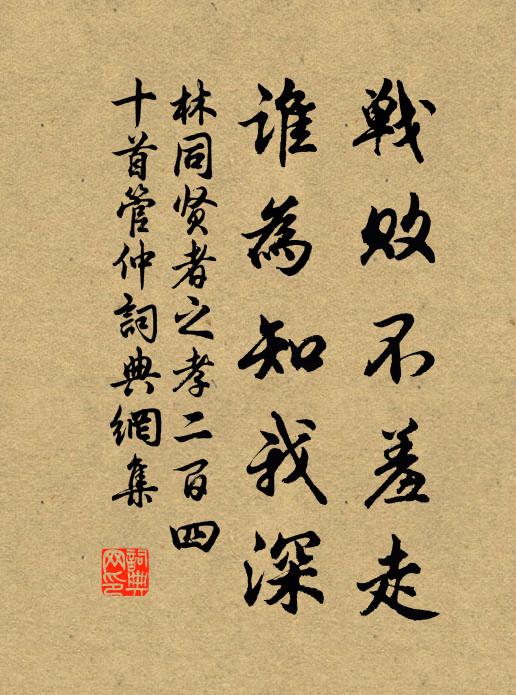 戦敗不羞走
誰為知我深
林同贤者之孝二百四
十首管仲詞典網集
詞典
网印